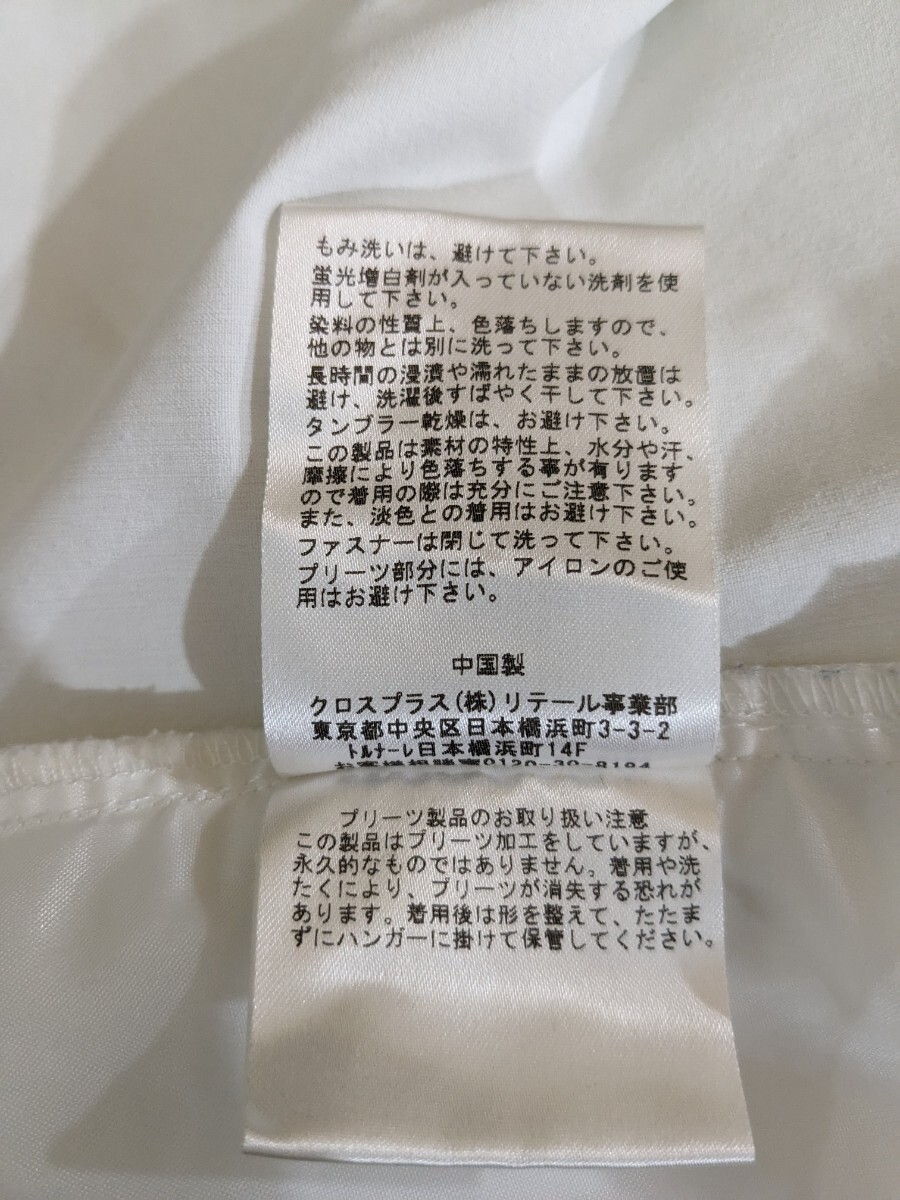 もみ洗いは、避けて下さい。
蛍光増白剤が入っていない洗剤を使
用して下さい。
染料の性質上、色落ちしますので、
他の物とは別に洗って下さい。
長時間の浸漬や濡れたままの放置は
避け、洗濯後すばやく干して下さい。
タンブラー乾燥は、お避け下さい。
この製品は素材の特性上、水分や汗、
摩擦により色落ちする事が有ります
ので着用の際は充分にご注意下さい。
また、淡色との着用はお避け下さい。
ファスナーは閉じて洗って下さい。
プリーツ部分には、アイロンのご使
用はお避け下さい。
中国製
クロスプラス(株)リテール事業部
東京都中央区日本橋浜町3-3-2
ﾄﾙﾅｰﾚ日本橋浜町14F
お客様相談室
プリーツ製品のお取り扱い注意
この製品はプリーツ加工をしていますが、
永久的なものではありません。着用や洗
たくにより、プリーツが消失する恐れが
あります。着用後は形を整えて、たたま
ずにハンガーに掛けて保管してください。